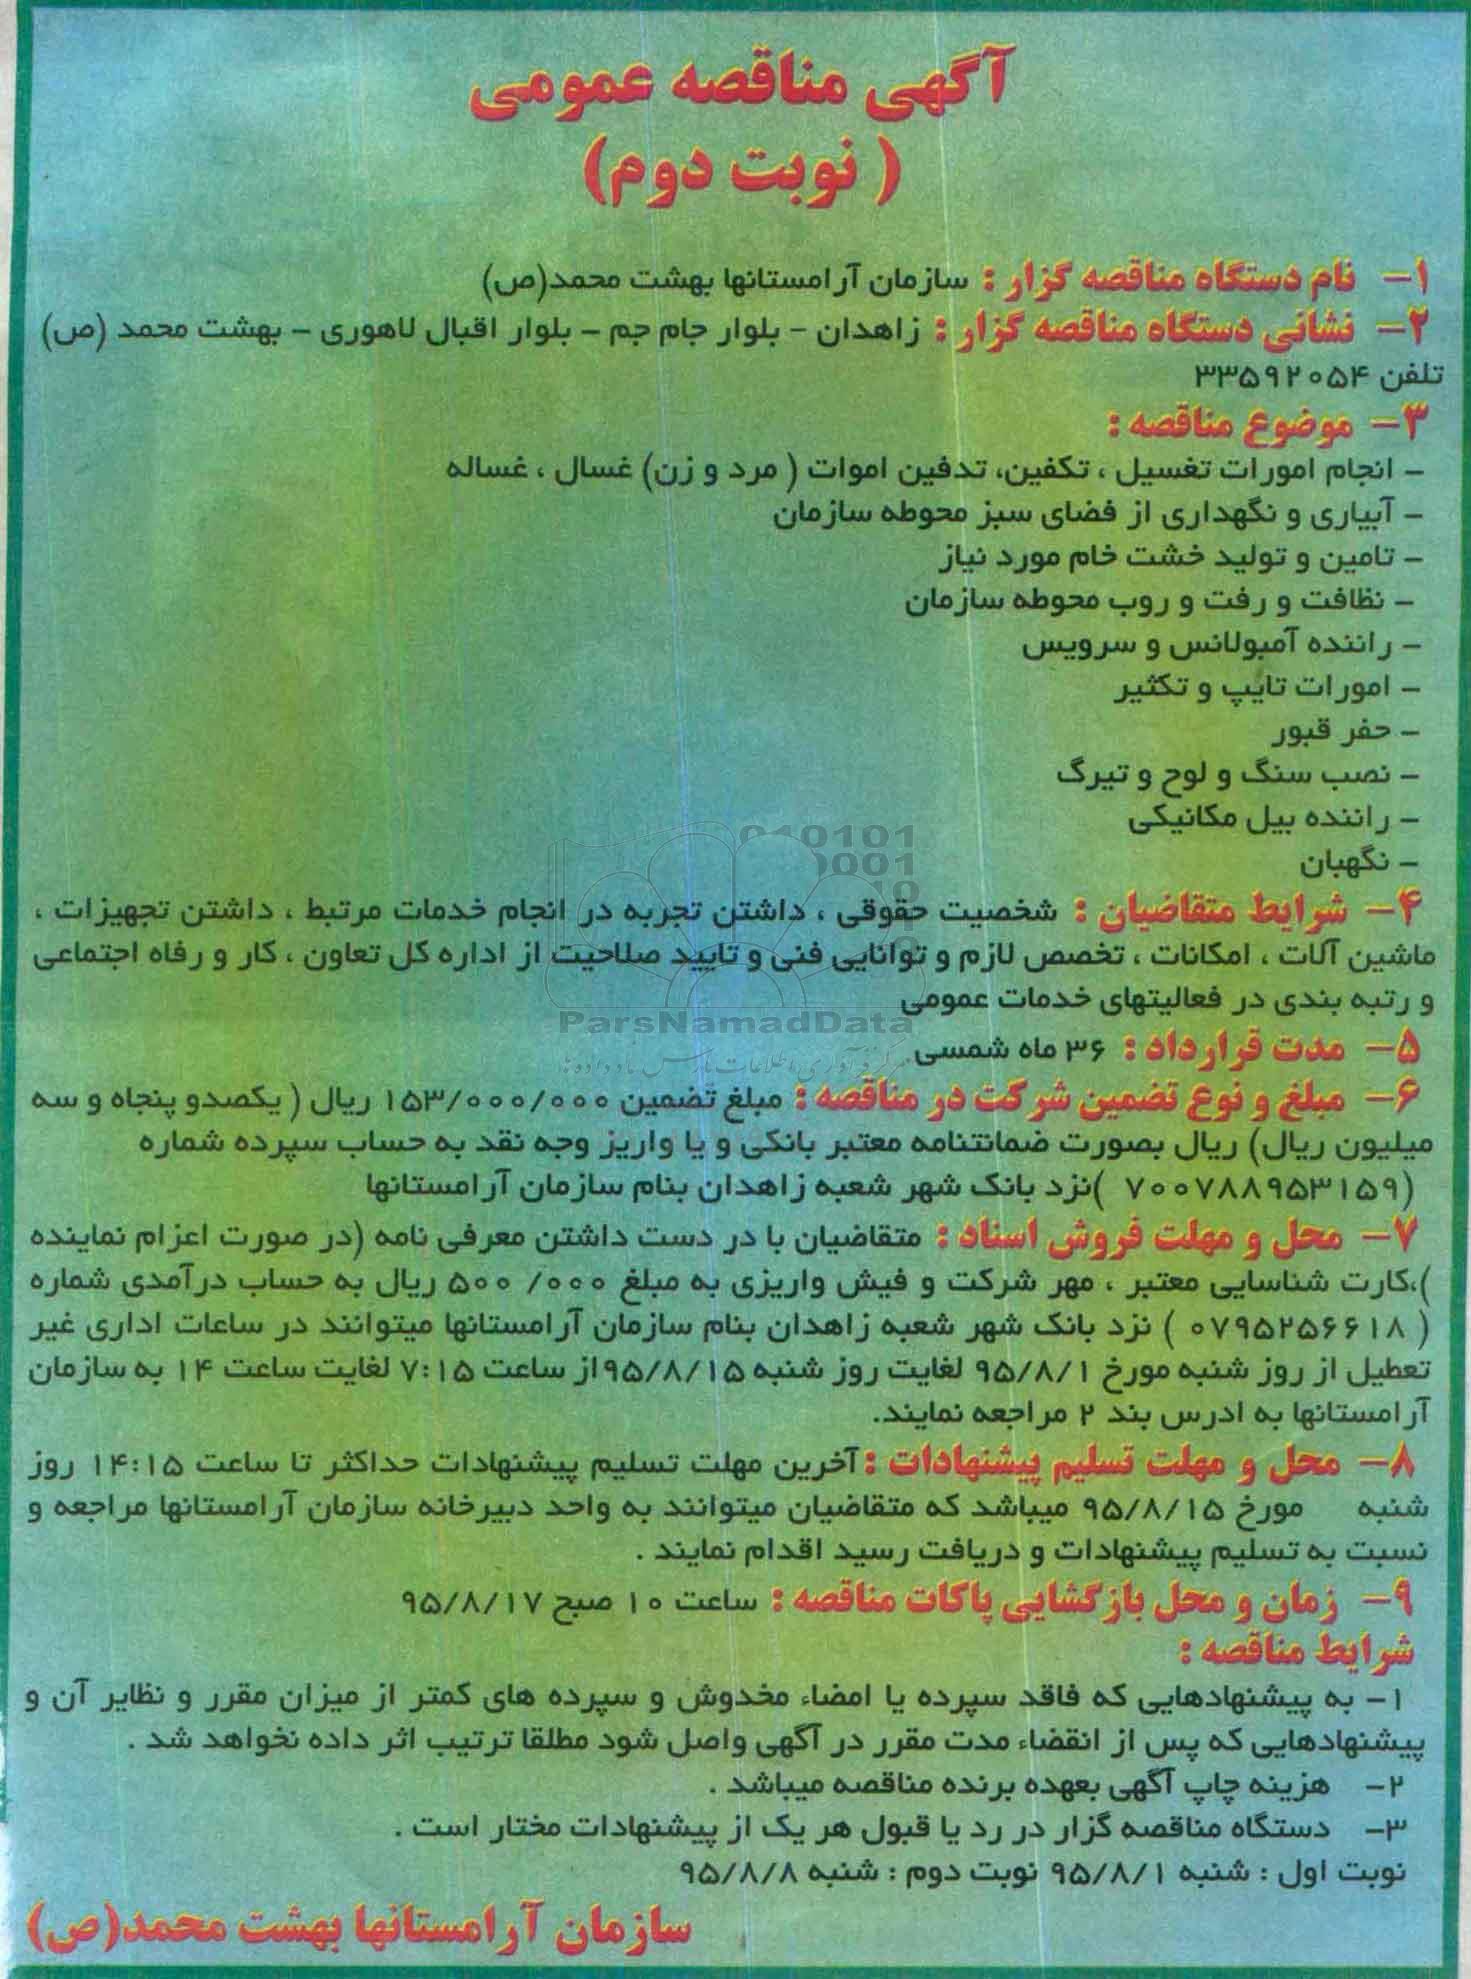 آگهی مناقصه عمومی
( نوبت دوم)
۱- نام دستگاه مناقصه گزار : سازمان آرامستانها بهشت محمد(ص)
۲- نشانی دستگاه مناقصه گزار : زاهدان - بلوار جام جم - بلوار اقبال لاهوری - بهشت محمد (ص)
تلفن ۳۳۵۹۲۰۵۴
۳- موضوع مناقصه :
- انجام امورات تغسیل ، تکفین، تدفین اموات ( مرد و زن) غسال ، غساله
- آبیاری و نگهداری از فضای سبز محوطه سازمان
- تامین و تولید خشت خام مورد نیاز
- نظافت و رفت و روب محوطه سازمان
- راننده آمبولانس و سرویس
- امورات تایپ و تکثیر
- حفر قبور
- نصب سنگ و لوح و تیرگ
- راننده بیل مکانیکی
- نگهبان
۴- شرایط متقاضیان : شخصیت حقوقی ، داشتن تجربه در انجام خدمات مرتبط ، داشتن تجهیزات ،
ماشین آلات ، امکانات ، تخصص لازم و توانایی فنی و تایید صلاحیت از اداره کل تعاون ، کار و رفاه اجتماعی
و رتبه بندی در فعالیتهای خدمات عمومی
ParsNamadData
۵- مدت قرارداد : ۳۶ ماه شمسی
۶- مبلغ و نوع تضمین شرکت در مناقصه : مبلغ تضمین ۱۵۳/۰۰۰/۰۰۰ ریال ( یکصدو پنجاه و سه
میلیون ریال) ریال بصورت ضمانتنامه معتبر بانکی و یا واریز وجه نقد به حساب سپرده شماره
(۷۰۰۷۸۸۹۵۳۱۵۹ )نزد بانک شهر شعبه زاهدان بنام سازمان آرامستانها
۷- محل و مهلت فروش اسناد : متقاضیان با در دست داشتن معرفی نامه (در صورت اعزام نماینده
)،کارت شناسایی معتبر ، مهر شرکت و فیش واریزی به مبلغ ۵۰۰ /۰۰۰ ریال به حساب درآمدی شماره
( ۰۷۹۵۲۵۶۶۱۸ ) نزد بانک شهر شعبه زاهدان بنام سازمان آرامستانها میتوانند در ساعات اداری غیر
تعطیل از روز شنبه مورخ ۹۵/۸/۱ لغایت روز شنبه ۹۵/۸/۱۵از ساعت ۷:۱۵ لغایت ساعت ۱۴ به سازمان
آرامستانها به ادرس بند ۲ مراجعه نمایند.
۸- محل و مهلت تسلیم پیشنهادات :آخرین مهلت تسلیم پیشنهادات حداکثر تا ساعت ۱۴:۱۵ روز
شنبه مورخ ۹۵/۸/۱۵ میباشد که متقاضیان میتوانند به واحد دبیرخانه سازمان آرامستانها مراجعه و
نسبت به تسلیم پیشنهادات و دریافت رسید اقدام نمایند .
۹- زمان و محل بازگشایی پاکات مناقصه : ساعت ۱۰ صبح ۹۵/۸/۱۷
شرایط مناقصه :
۱- به پیشنهادهایی که فاقد سپرده یا امضاء مخدوش و سپرده های کمتر از میزان مقرر و نظایر آن و
پیشنهادهایی که پس از انقضاء مدت مقرر در آگهی واصل شود مطلقا ترتیب اثر داده نخواهد شد .
۲- هزینه چاپ آگهی بعهده برنده مناقصه میباشد .
۳- دستگاه مناقصه گزار در رد یا قبول هر یک از پیشنهادات مختار است .
نوبت اول : شنبه ۹۵/۸/۱ نوبت دوم : شنبه ۹۵/۸/۸
سازمان آرامستانها بهشت محمد(ص)